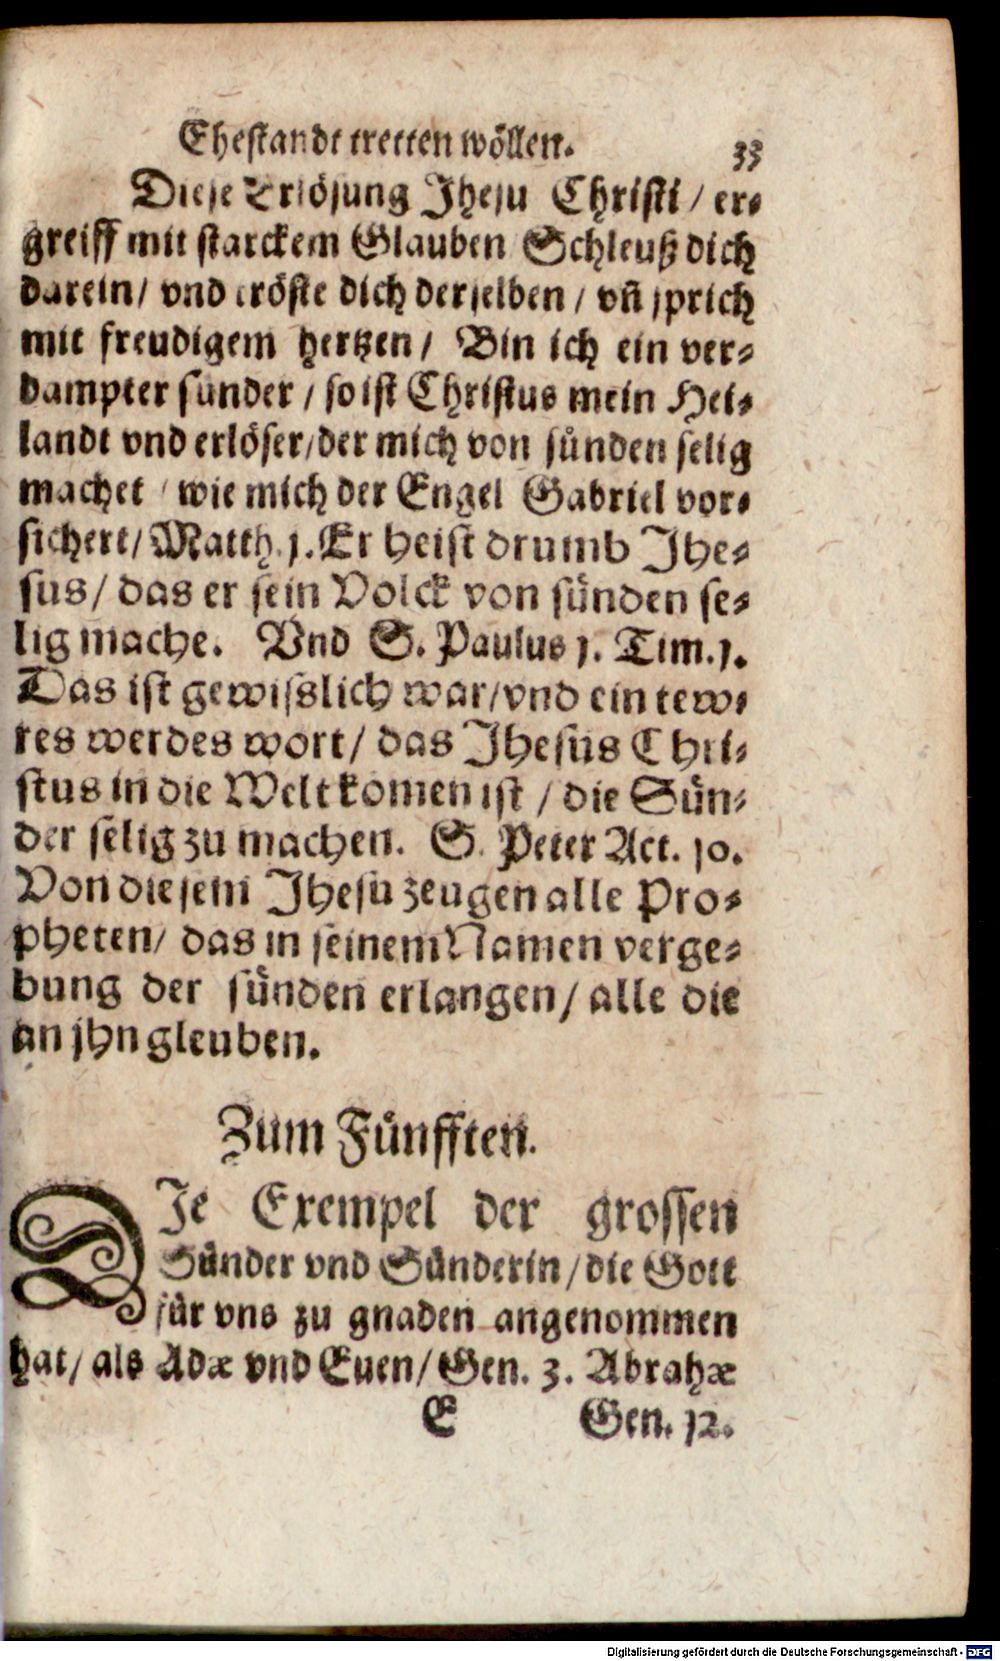 Ehestandt tretten wöllen. 33
Diese Erlösung Jhesu Christi / er⸗
greiff mit starckem Glauben Schleuß dich
darein / vnd tröste dich derselben / vñ sprich
mit freudigem hertzen / Bin ich ein ver⸗
dampter sünder / so ist Christus mein Hei⸗
landt vnd erlöser / der mich von sünden selig
machet / wie mich der Engel Gabriel vor⸗
sichert / Matth. 1. Er heist drumb Jhe⸗
sus / das er sein Volck von sünden se⸗
lig mache. Vnd S. Paulus 1. Tim. 1.
Das ist gewisslich war / vnd ein tew⸗
res werdes wort / das Jhesus Chri⸗
stus in die Welt komen ist / die Sün⸗
der selig zu machen. S. Peter Act. 10.
Von diesem Jhesu zeugen alle Pro⸗
pheten / das in seinem Namen verge⸗
bung der sünden erlangen / alle die
an jhn gleuben.
Zum Fünfften.
DJe Exempel der grossen
Sünder vnd Sünderin / die Gott
für vns zu gnaden angenommen
hat / als Adæ vnd Euen / Gen. 3. Abrahæ
E Gen. 12.
Digitalisierung gefördert durch die Deutsche Forschungsgemeinschaft - DFG